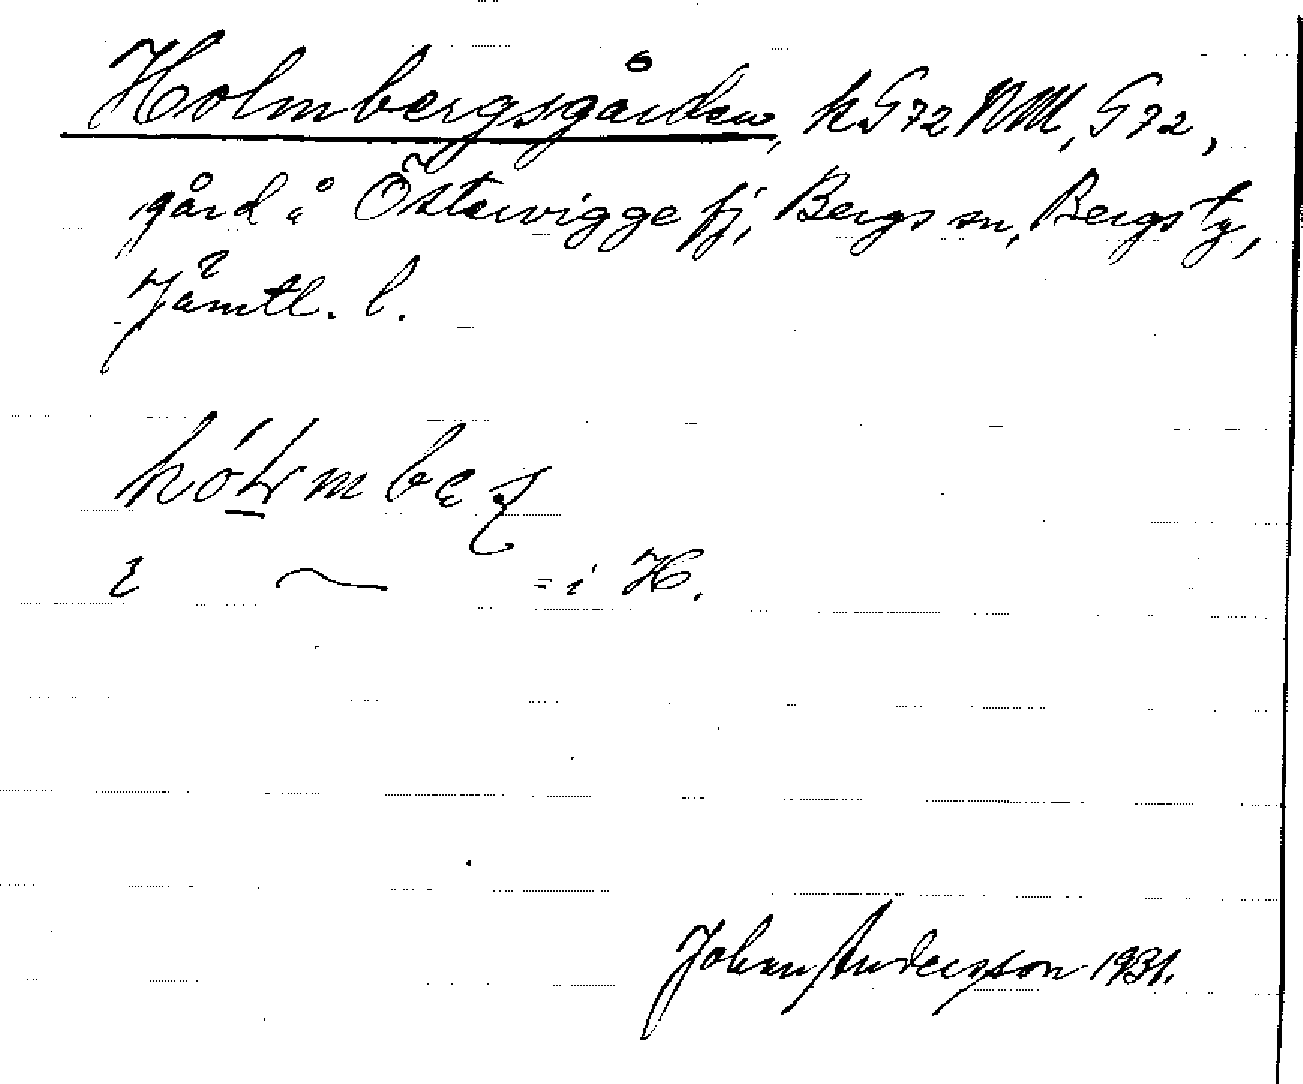 Holmbergsgården, h G72 NM, G72,
gård å Östervigge fj, Bergs sn, Bergs tg,
Jämtl. l.
= i H.
Johan Andersson 1931.